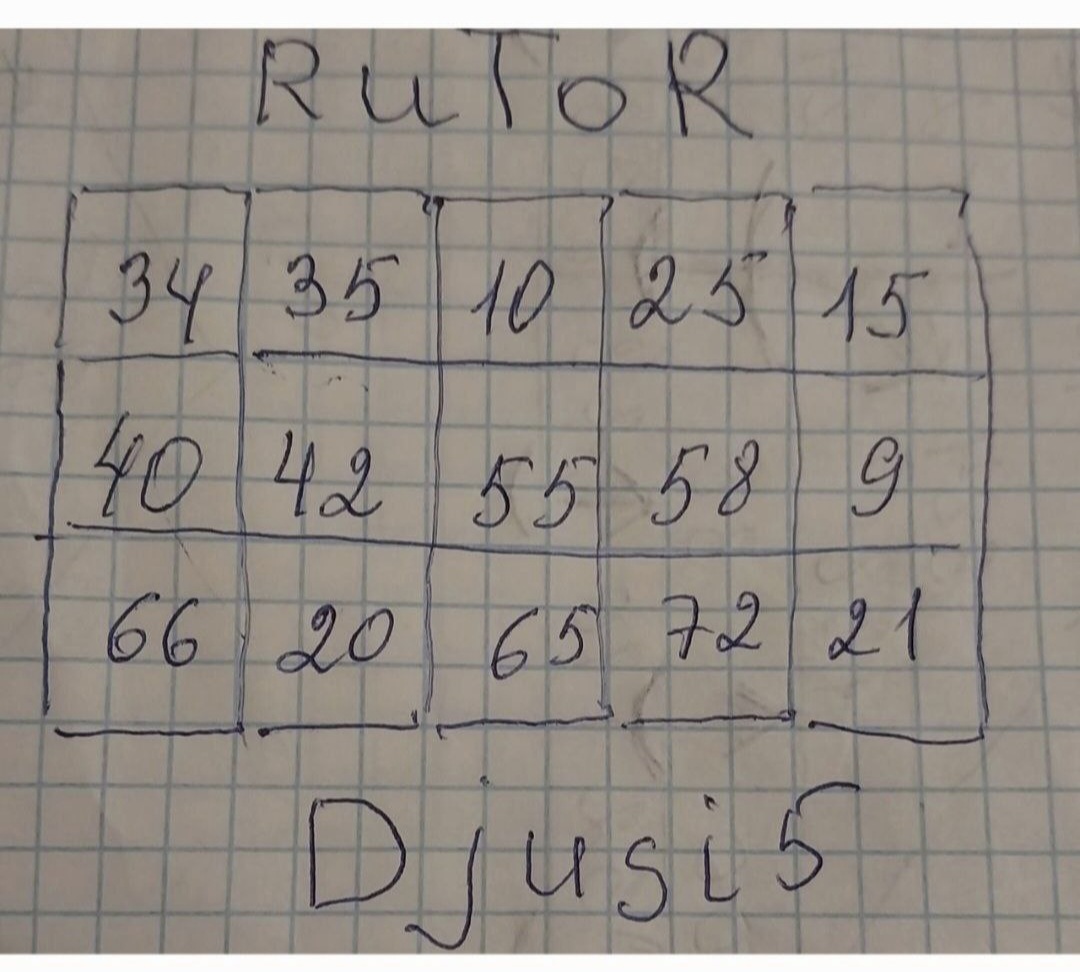 RuToR
34 35 10 25 15
40 42 55 58 9
66 20 65 72 21
Djusi5